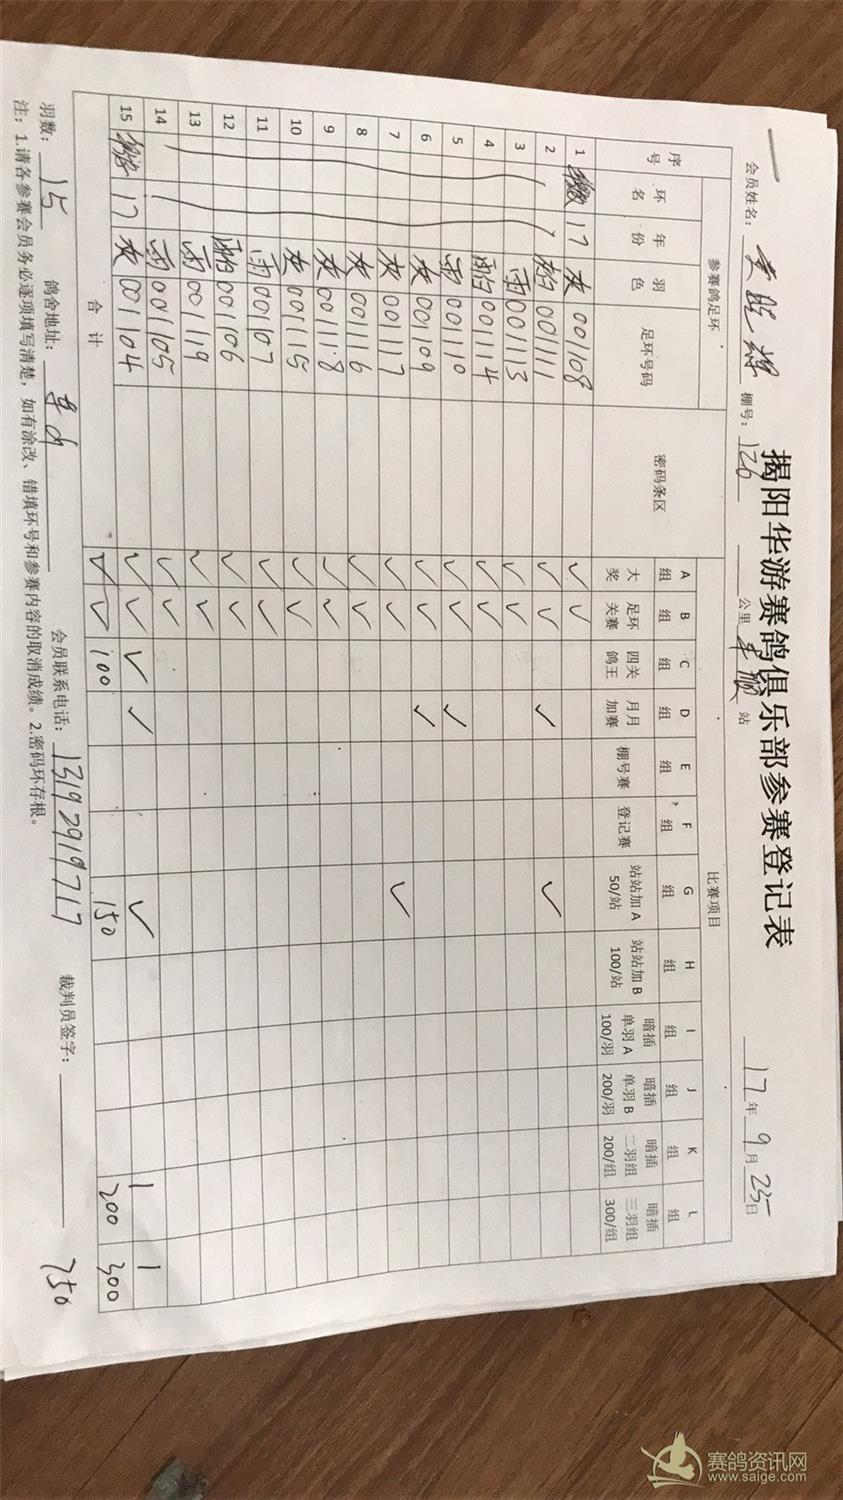 揭阳华游赛鸽俱乐部参赛登记表
会员姓名： 棚号：126 公里 站 17年9月25日
参赛鸽足环 密码条区 比赛项目
序号 环名 年份 羽色 足环号码 A组 B组 C组 D组 E组 F组 G组 H组 I组 J组 K组 L组
大奖 足环关赛 四关鸽王 月月加赛 棚号赛 登记赛 站站加A 50/站 站站加B 100/站 暗插单羽A 100/羽 暗插单羽B 200/羽 暗插二羽组 200/组 暗插三羽组 300/组
1 17 灰 001108 ✓ ✓
2 001111 ✓ ✓ ✓ ✓
3 雨 001113 ✓ ✓
4 雨白 001114 ✓ ✓
5 雨 001110 ✓ ✓ ✓
6 灰 001109 ✓ ✓ ✓
7 灰 001117 ✓ ✓ ✓
8 灰 001116 ✓ ✓
9 灰 001118 ✓ ✓
10 灰 001115 ✓ ✓
11 雨 001107 ✓ ✓
12 雨白 001106 ✓ ✓
13 雨 001119 ✓ ✓
14 雨 001105 ✓ ✓
15 17 灰 001104 ✓ ✓ ✓ ✓ ✓ 1 1
合计 ✓ ✓ 100 150 200 300
羽数：15 鸽舍地址： 会员联系电话：13192919717 裁判员签字： 750
注：1.请各参赛会员务必逐项填写清楚，如有涂改、错填环号和参赛内容的取消成绩。2.密码环存根。
赛鸽资讯网
www.saige.com